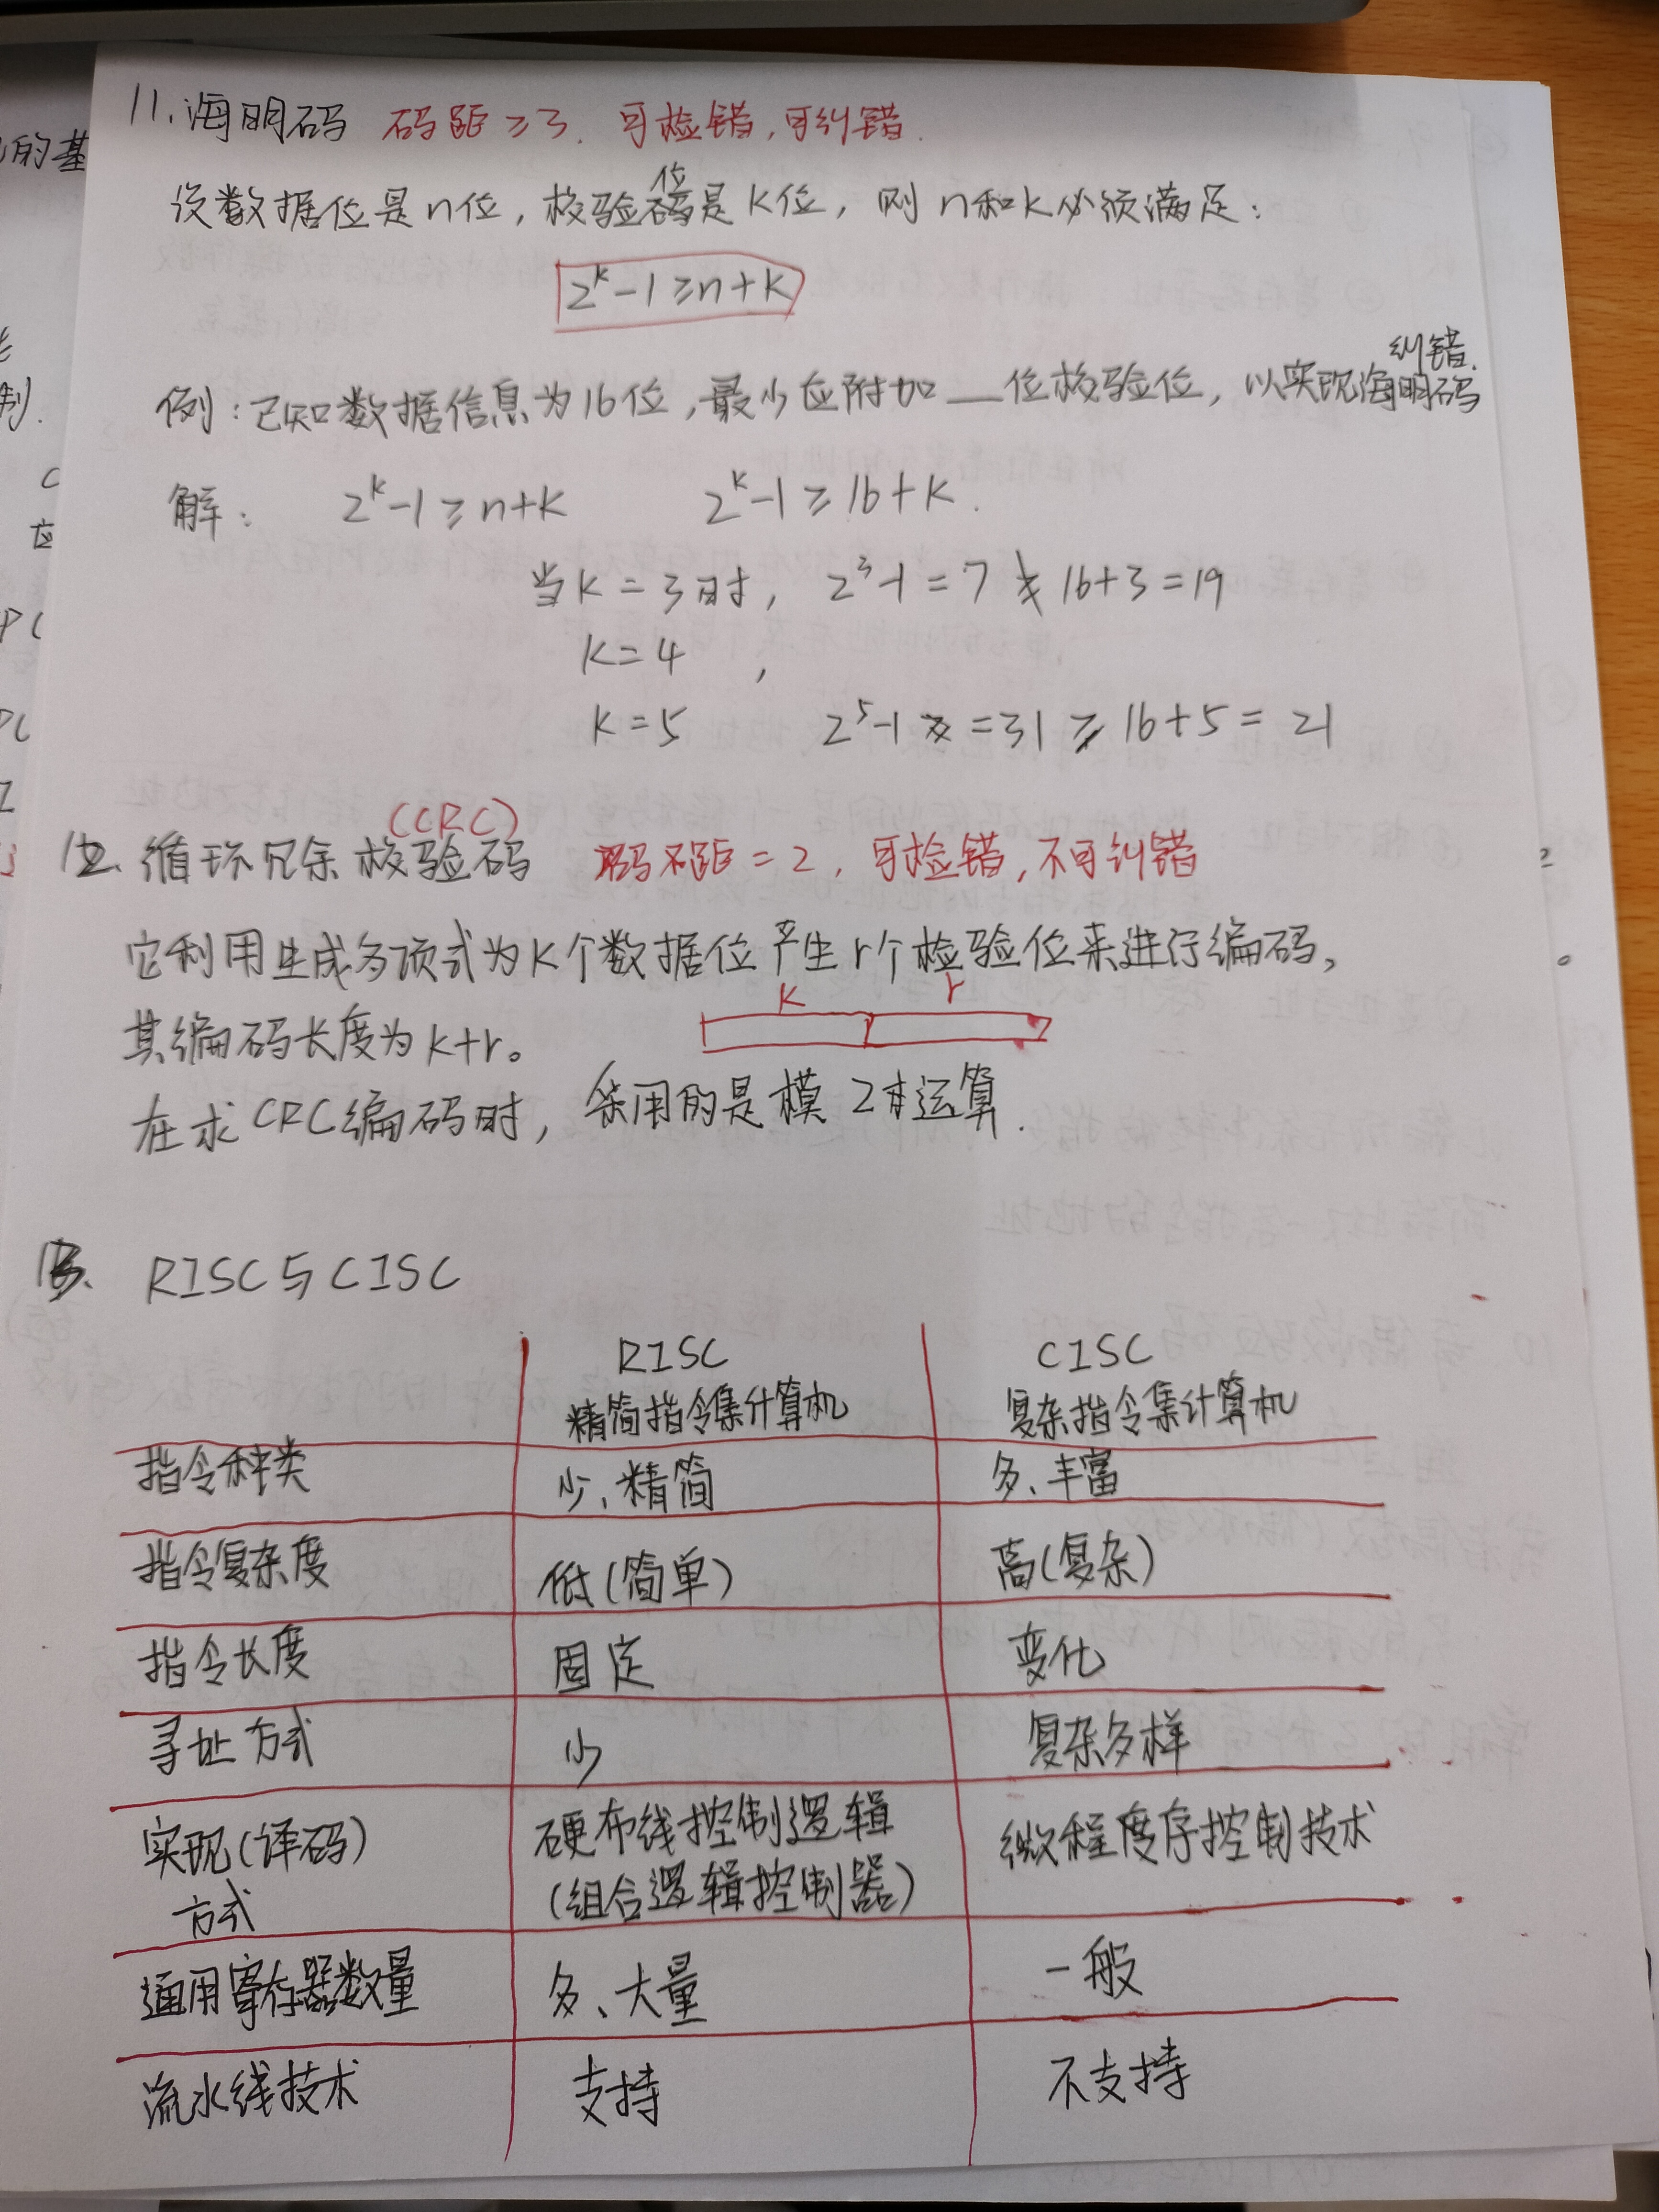 11.海明码 码距≥3.可检错,可纠错.
设数据位是n位,校验位是k位,则n和k必须满足:
2^k-1≥n+k
例:已知数据信息为16位,最少应附加__位校验位,以实现海明码纠错.
解: 2^k-1≥n+k 2^k-1≥16+k.
当k=3时, 2^3-1=7≱16+3=19
k=4 ,
k=5 2^5-1=31≥16+5=21
12.循环冗余校验码(CRC) 码距=2,可检错,不可纠错
它利用生成多项式为k个数据位产生r个检验位来进行编码,
k r
其编码长度为k+r。
在求CRC编码时,采用的是模2运算.
13. RISC与CISC
RISC CISC
精简指令集计算机 复杂指令集计算机
指令种类 少、精简 多、丰富
指令复杂度 低(简单) 高(复杂)
指令长度 固定 变化
寻址方式 少 复杂多样
实现(译码) 硬布线控制逻辑 微程度序控制技术
方式 (组合逻辑控制器)
通用寄存器数量 多、大量 一般
流水线技术 支持 不支持